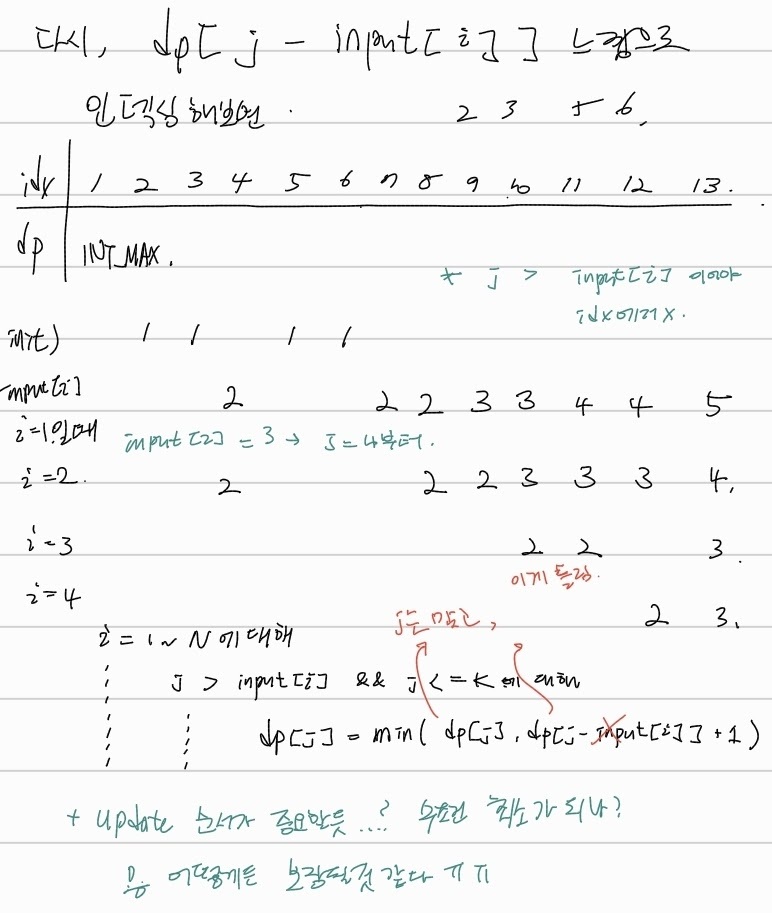 다시, dp[ j - input[i] ] 느낌으로
인덱싱 해보면. 2 3 5 6.
idx 1 2 3 4 5 6 7 8 9 10 11 12 13.
dp INT_MAX.
* j > input[i] 이어야
idx에러X.
init) 1 1 1 1
input[i]
i=1일때 2 2 2 3 3 4 4 5
input[2] = 3 → j=4부터.
i=2. 2 2 2 3 3 3 4.
i=3 2 2 3.
이게 틀림.
i=4 2 3.
j는 맞고,
i = 1 ~ N에 대해
j > input[i] && j <= K에 대해
dp[j] = min( dp[j], dp[j-input[i]] + 1 )
+ update 순서가 중요한듯...? 무조건 최소가 되나?
응 어떻게든 보장될것 같다 ㅠㅠ